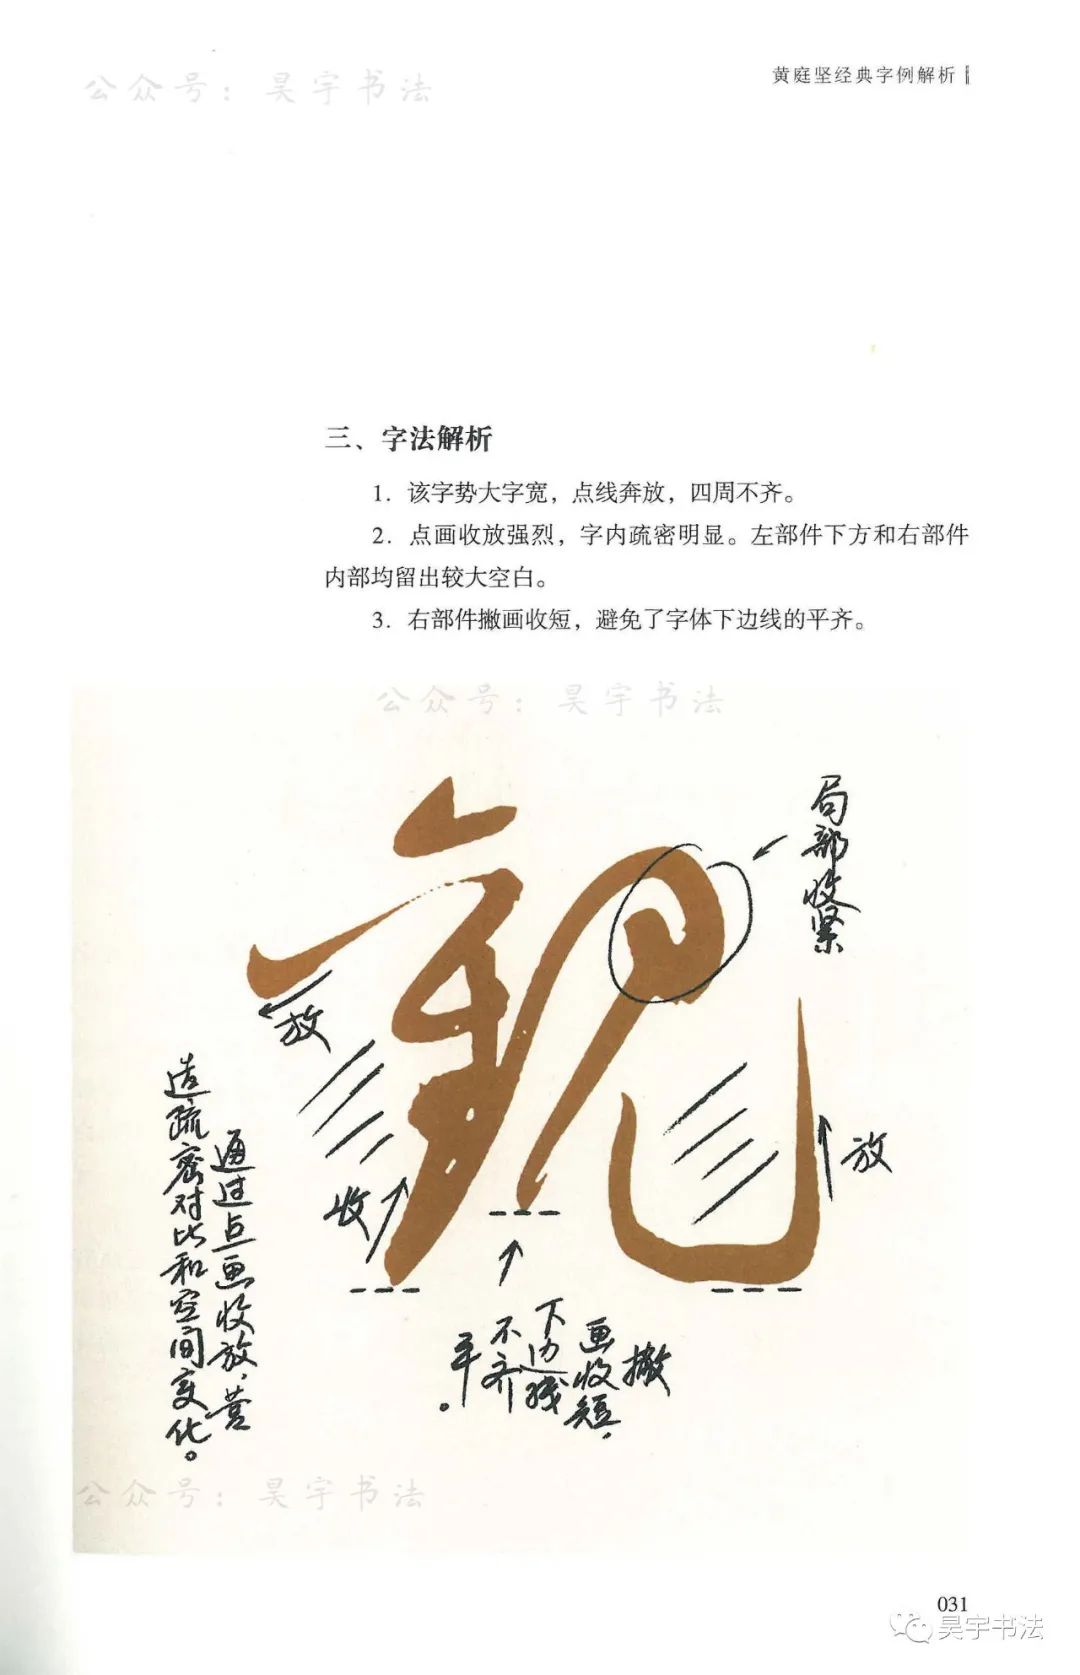 公众号：昊宇书法
黄庭坚经典字例解析
三、字法解析
1. 该字势大字宽，点线奔放，四周不齐。
2. 点画收放强烈，字内疏密明显。左部件下方和右部件
内部均留出较大空白。
3. 右部件撇画收短，避免了字体下边线的平齐。
公众号：昊宇书法
局部收紧
放
放
收
通过点画收放，营
造疏密对比和空间变化。
撇
画收短，
下边线
不齐
平。
公众号：昊宇书法
031
昊宇书法